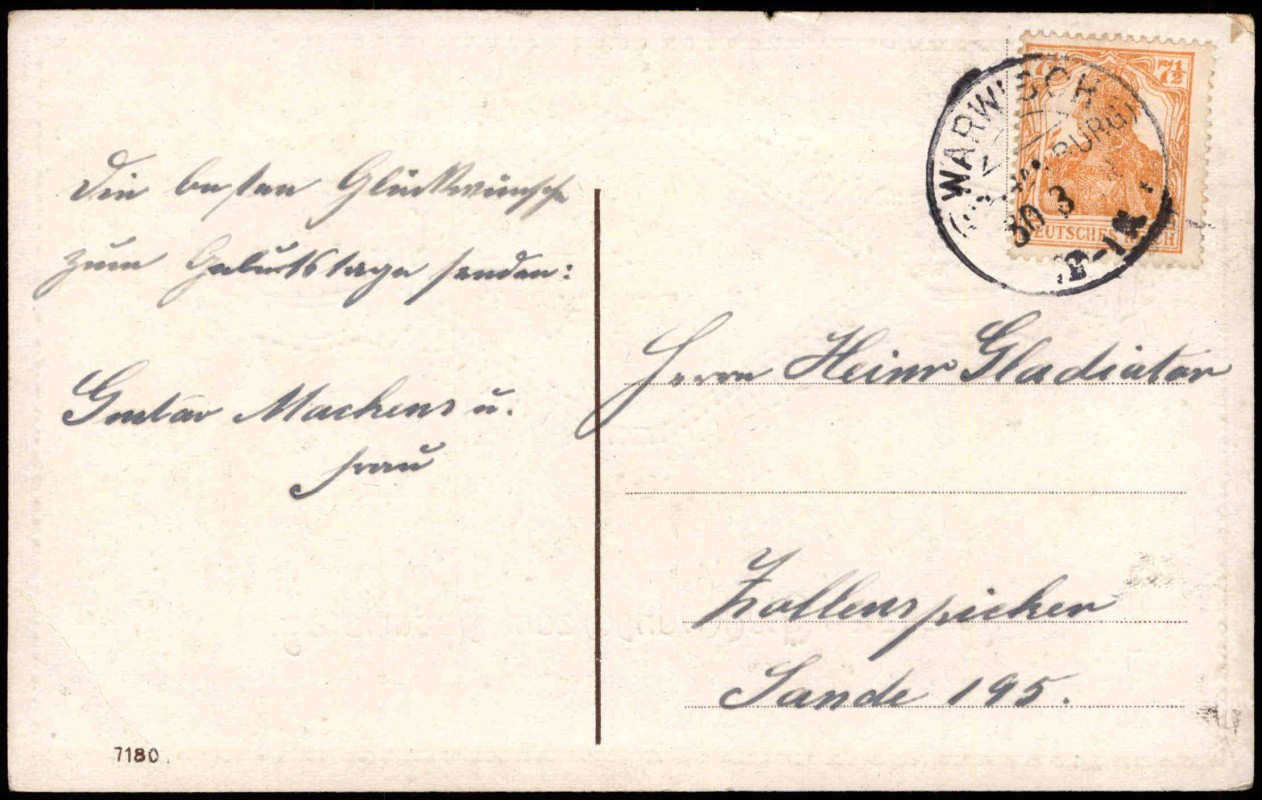 Die besten Glückwünsche
zum Geburtstage senden:
Gustav Mackens u.
Frau
7180
7½
DEUTSCHES REICH
WARWISCH
BURG)
30 3
Herrn Heinr Gladiator
Zollenspieker
Sande 195.